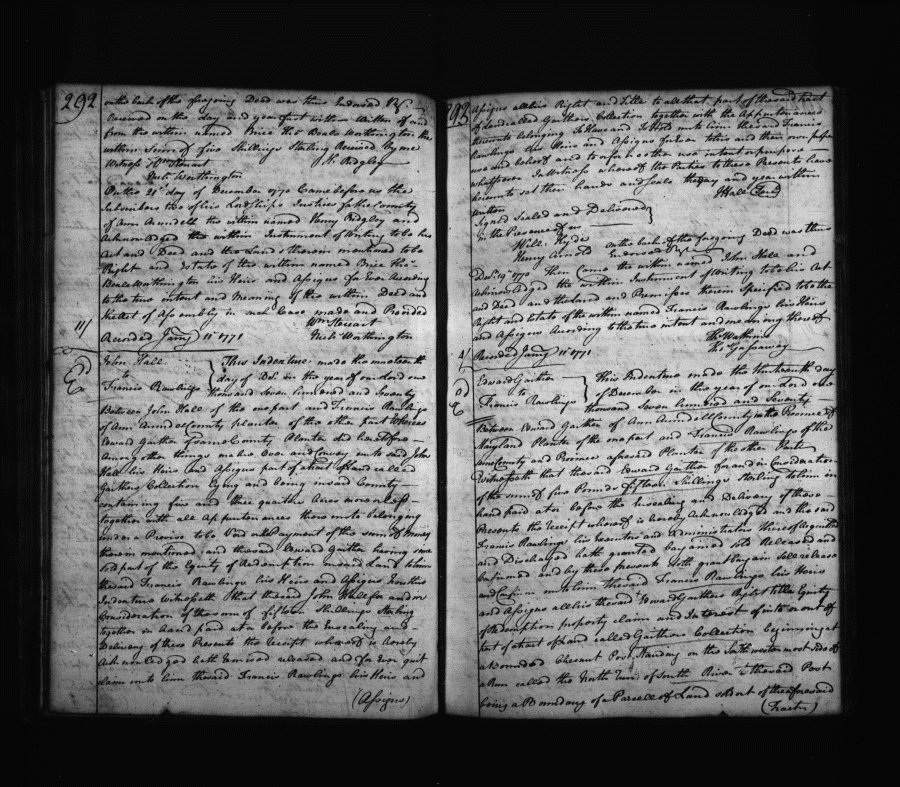 292
on the back of the foregoing Deed was thus Endorsed Viz.
Received on the day and year first within Written of and
from the within named Brice Thos Beale Worthington the
within Sum of five Shillings Sterling Received by me
Witness Wm Stewart H. Ridgley
Nich Worthington
On the 21st day of December 1770 Came before us the
Subscribers two of his Lordships Justices for the County
of Ann Arundell the within named Henry Ridgley and
Acknowledged the within Instrument of Writing to be his
Act and Deed and the Land therein mentioned to be the
Right and Estate of the within named Brice Thos
Beale Worthington his Heirs and Assigns for Ever According
to the true intent and Meaning of this within Deed and
the Act of Assembly in such Case made and Provided
Wm Stewart
Nich Worthington
Recorded Janry 11th 1771
John Hall
to
Francis Rawlings
This Indenture made the nineteenth
day of Decr in the year of our Lord one
thousand Seven hundred and Seventy
Between John Hall of the one part and Francis Rawlings
of Ann Arundell County planter of the other part Whereas
Edward Gaither of same County Planter did heretofore
Among other things make Over and Convey unto said John
Hall his Heirs and Assigns part of a tract of Land called
Gaithers Collection Lying and being in said County
containing five and three quarters Acres more or less
together with all Appurtenances thereunto belonging
under a Proviso to be Void on Repayment of the sum of Money
therein mentioned and the said Edward Gaither having since
Sold part of the Equity of Redemption in said Land to him
the said Francis Rawlings his Heirs and Assigns Now this
Indenture witnesseth that the said John Hall for and in
Consideration of the sum of fifteen Shillings Sterling
together in hand paid at or before the Ensealing and
Delivery of these Presents the receipt whereof is hereby
Acknowledged hath remised released and for ever quit
claim unto him the said Francis Rawlings his Heirs and
(Assigns)
292
Assigns all his Right and Title to all that part of the said tract
of Land called Gaithers Collection together with the Appurtenances
thereunto belonging To Have and To Hold unto him the said Francis
Rawlings his Heirs and Assigns for Ever to his and their own proper
use and behoof and to and for no other use intent or purpose
whatsoever In Witness whereof the Parties to these Presents have
hereunto set their hands and seals the day and year within
written
JHall Seal
Signed Sealed and Delivered
in the Presence of us
Will. Hyde
Henry Arnold
on the back of the foregoing Deed was thus
Endorsed Viz
Decr 19th 1770 then Came the within named John Hall and
Acknowledged the within Instrument of Writing to be his Act
and Deed and the Land and Premisses therein Specified to be the
Right and Estate of the within named Francis Rawlings his Heirs
and Assigns According to the true intent and meaning thereof
Thos Watkins
Thos Gassaway
Recorded Janry 11th 1771
Edward Gaither
to
Francis Rawlings
This Indenture made the thirteenth day
of December in the year of our Lord one
thousand Seven hundred and Seventy
Between Edward Gaither of Ann Arundell County in the Province of
Maryland Planter of the one part and Francis Rawlings of the
same County and Province aforesaid Planter of the other Part
Witnesseth that the said Edward Gaither for and in Consideration
of the sum of five Pounds fifteen Shillings Sterling to him in
hand paid at or before the Ensealing and Delivery of these
Presents the receipt whereof is hereby Acknowledged and the said
Francis Rawlings his Executors and Administrators thereof Acquitted
and Discharged hath granted bargained sold Released and
Confirmed and by these presents doth grant bargain Sell release
and Confirm unto him the said Francis Rawlings his Heirs
and Assigns all his the said Edward Gaithers Right title Equity
of Redemption property claim and Interest of in to or out of
Part of a tract of Land called Gaithers Collection beginning at
a Bounded Chesnut Post standing on the South western most side of
a Run called the North run of South River the said Post
being a Boundary of a Parcell of Land sold out of the aforesaid
(Tracts)